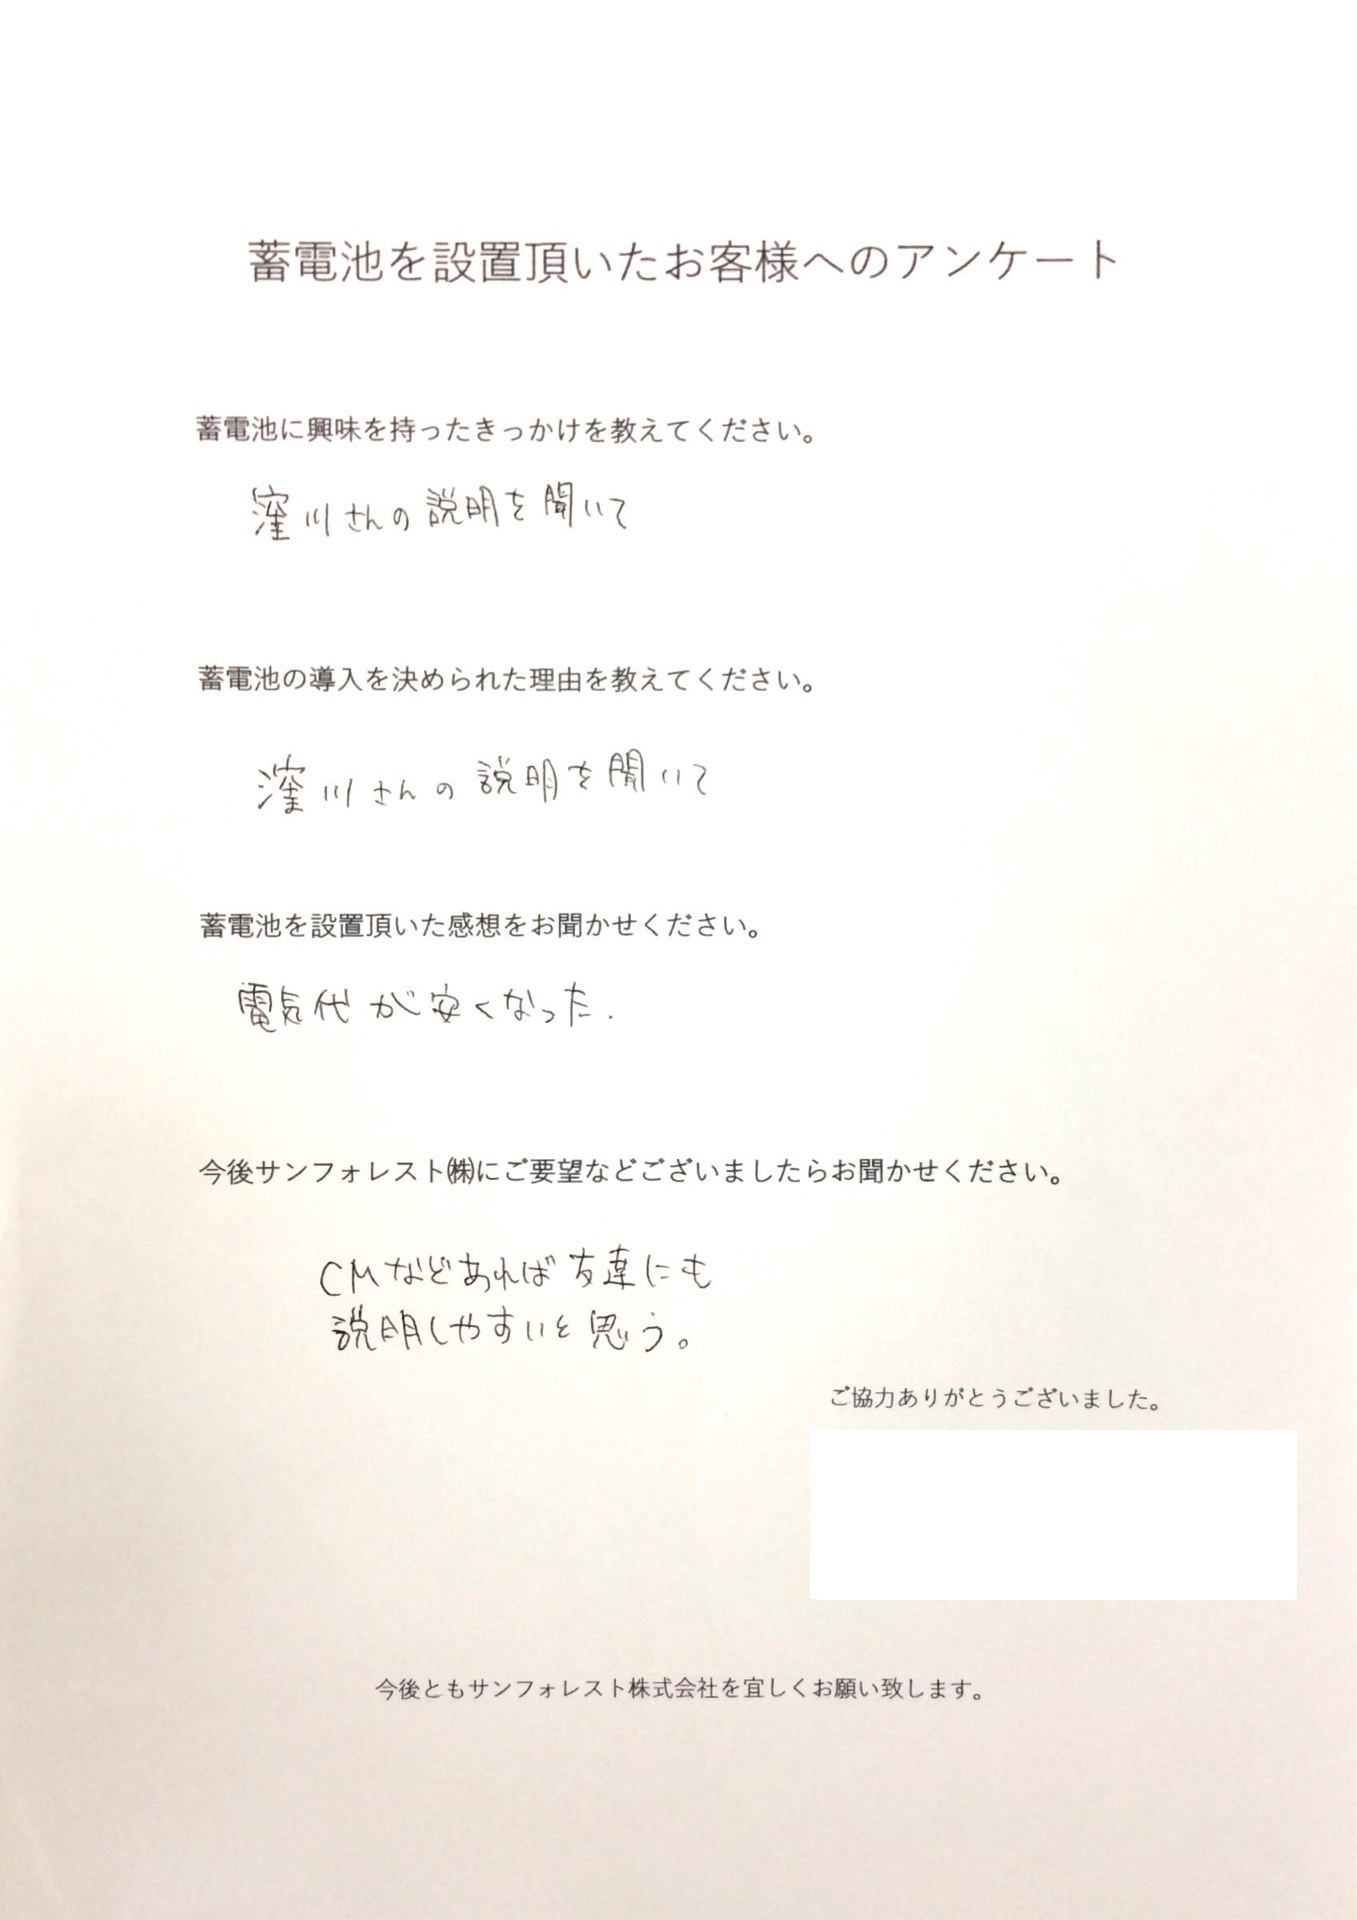 蓄電池を設置頂いたお客様へのアンケート
蓄電池に興味を持ったきっかけを教えてください。
窪川さんの説明を聞いて
蓄電池の導入を決められた理由を教えてください。
窪川さんの説明を聞いて
蓄電池を設置頂いた感想をお聞かせください。
電気代が安くなった.
今後サンフォレスト㈱にご要望などございましたらお聞かせください。
CMなどあれば友達にも
説明しやすいと思う。
ご協力ありがとうございました。
今後ともサンフォレスト株式会社を宜しくお願い致します。